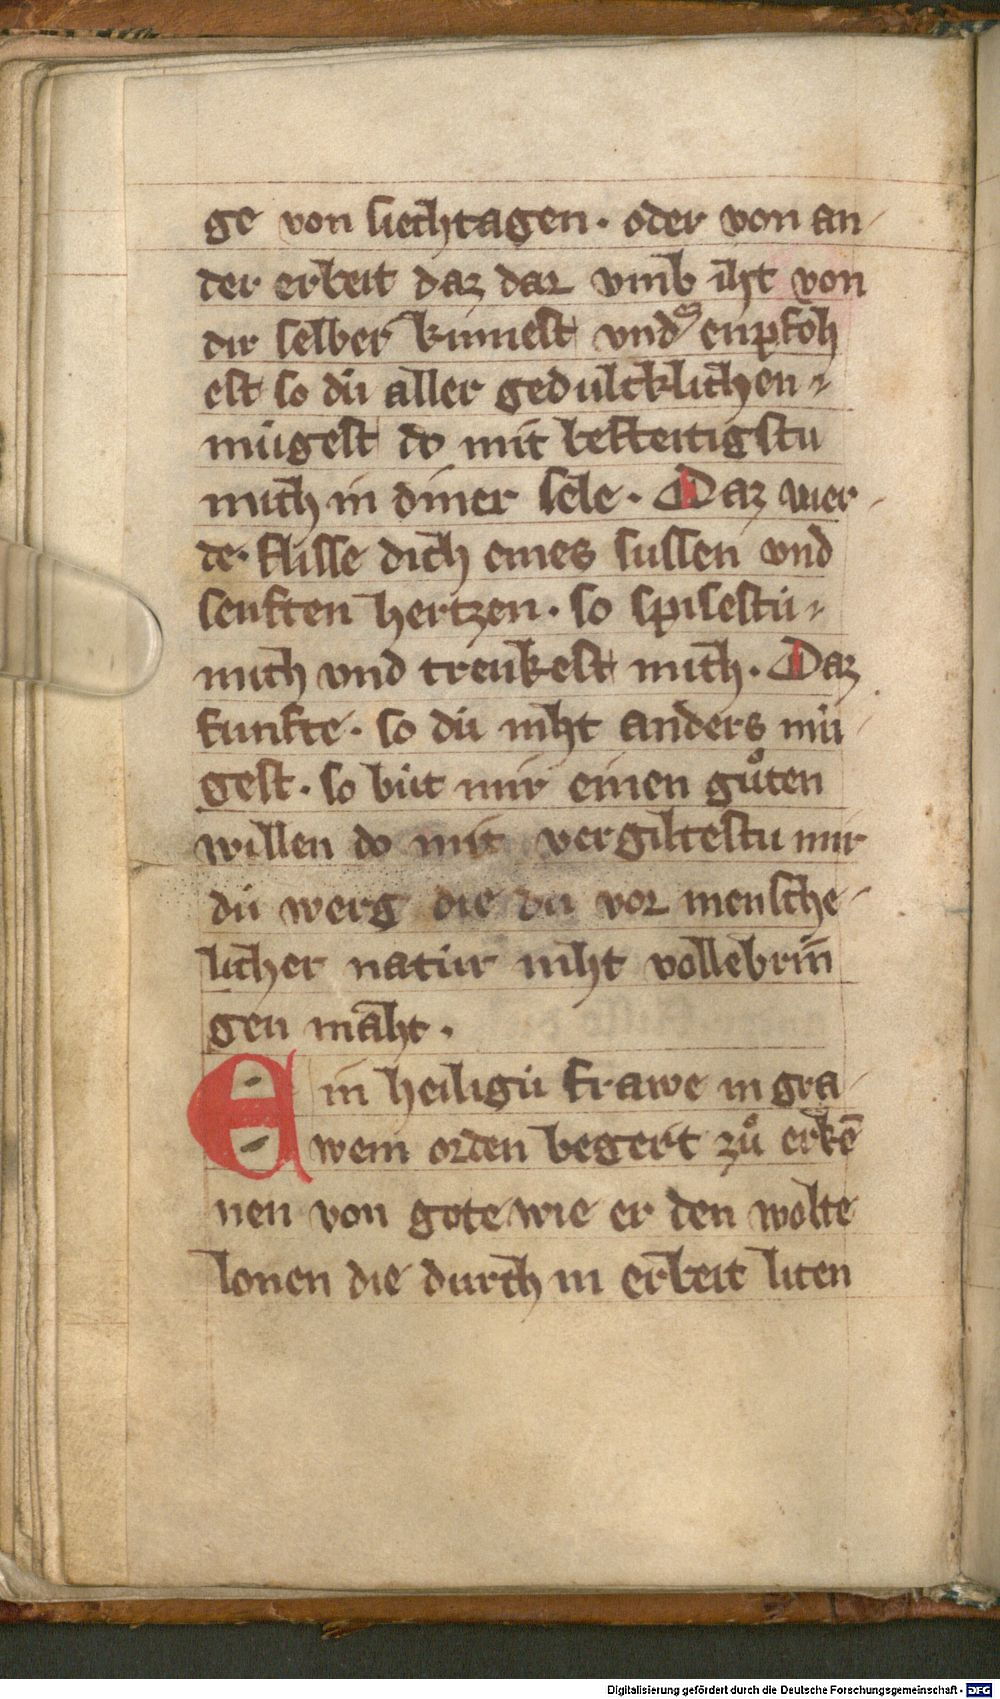 ge von siechtagen · oder von an-
der erbeit daz dar vmb iht von
dir selber kumest vnd enpfoh
est so dü aller gedultklichen
mügest do mit besteitigstu
mich in diner sele · Daz vier-
de · flisse dich eines sussen vnd
senften hertzen · so spisestu
mich vnd trenkest mich · Daz
funfte · so dü niht anders mü-
gest · so büt mir einen gůten
willen do mit vergiltestu mir
dü werg die du vor mensche-
licher natür niht vollebrin̄
gen maht ·
Ein heiligü frawe in gra-
wem orden begert zů erkē
nen von gote wie er den wolte
lonen die durch in erbeit liten
Digitalisierung gefördert durch die Deutsche Forschungsgemeinschaft - DFG